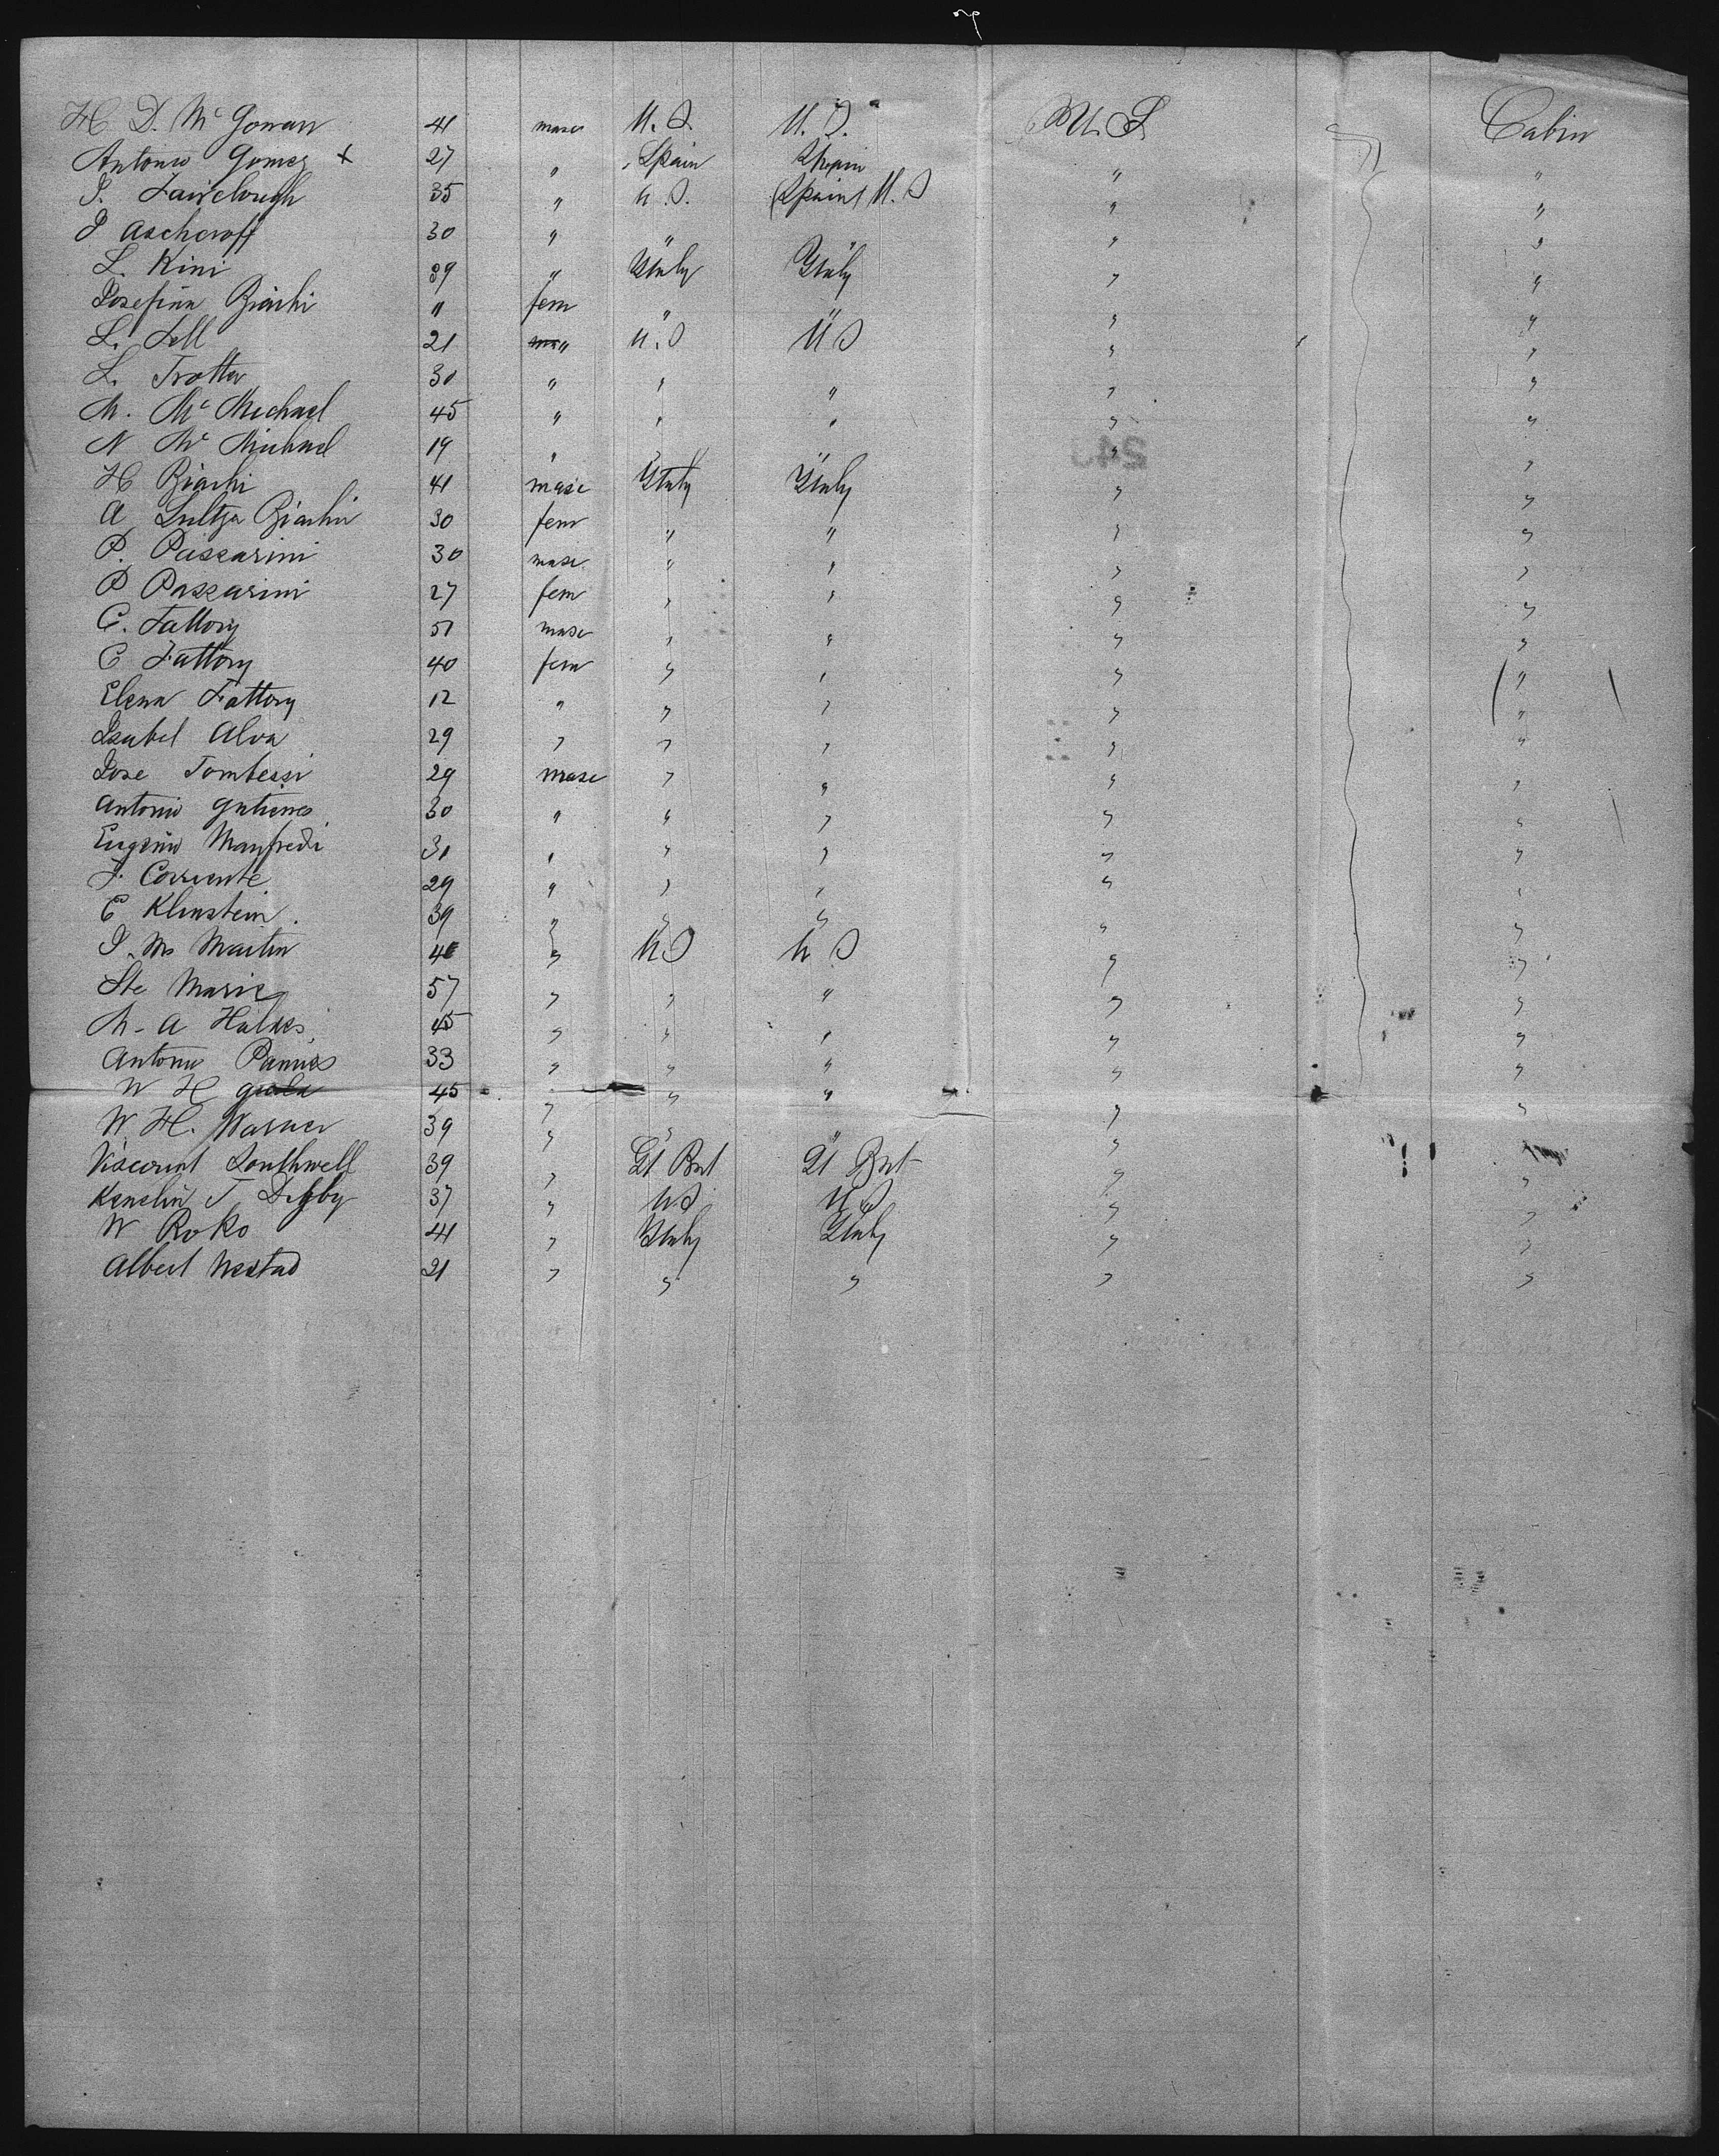 H. D. McGowan 41 masc U.S. U.S. U.S. Cabin
Antonio Gomez x 27 " Spain Spain " "
J. Fairclough 35 " U.S. (Spain) U.S " "
J Aschcroff 30 " " " " "
L. Rini 39 " Ytaly Ytaly " "
Josefina Biachi " fem " " " "
L. Fell 21 " U.S U S " "
L. Trotter 30 " " " " "
M. Mc Michael 45 " " " " "
N Mc Michael 19 " " " " "
H Biachi 41 masc Ytaly Ytaly " "
A Biachi 30 fem " " " "
P. Passarini 30 masc " " " "
P Passarini 27 fem " " " "
C. Fattory 51 masc " " " "
C Fattory 40 fem " " " "
Elena Fattory 12 " " " " "
Isabel Alva 29 " " " " "
Jose Tombessi 29 masc " " " "
Antonio Gutierres 30 " " " " "
Eugenio Manfredi 31 " " " " "
J. Corriente 29 " " " " "
C Klinstein. 39 " " " " "
J. M Martin 40 " U S U S " "
Ste Marie 57 " " " " "
M. A Hulkes 45 " " " " "
Antonio Pamies 33 " " " " "
W H 45 " " " " "
W. H. Warner 39 " " " " "
Viscount Southwell 39 " Gt Brit Gt Brit " "
Kenelin T Digby 37 " U S U S " "
W Roko 41 " Ytaly Ytaly " "
Albert Nestad 21 " " " " "